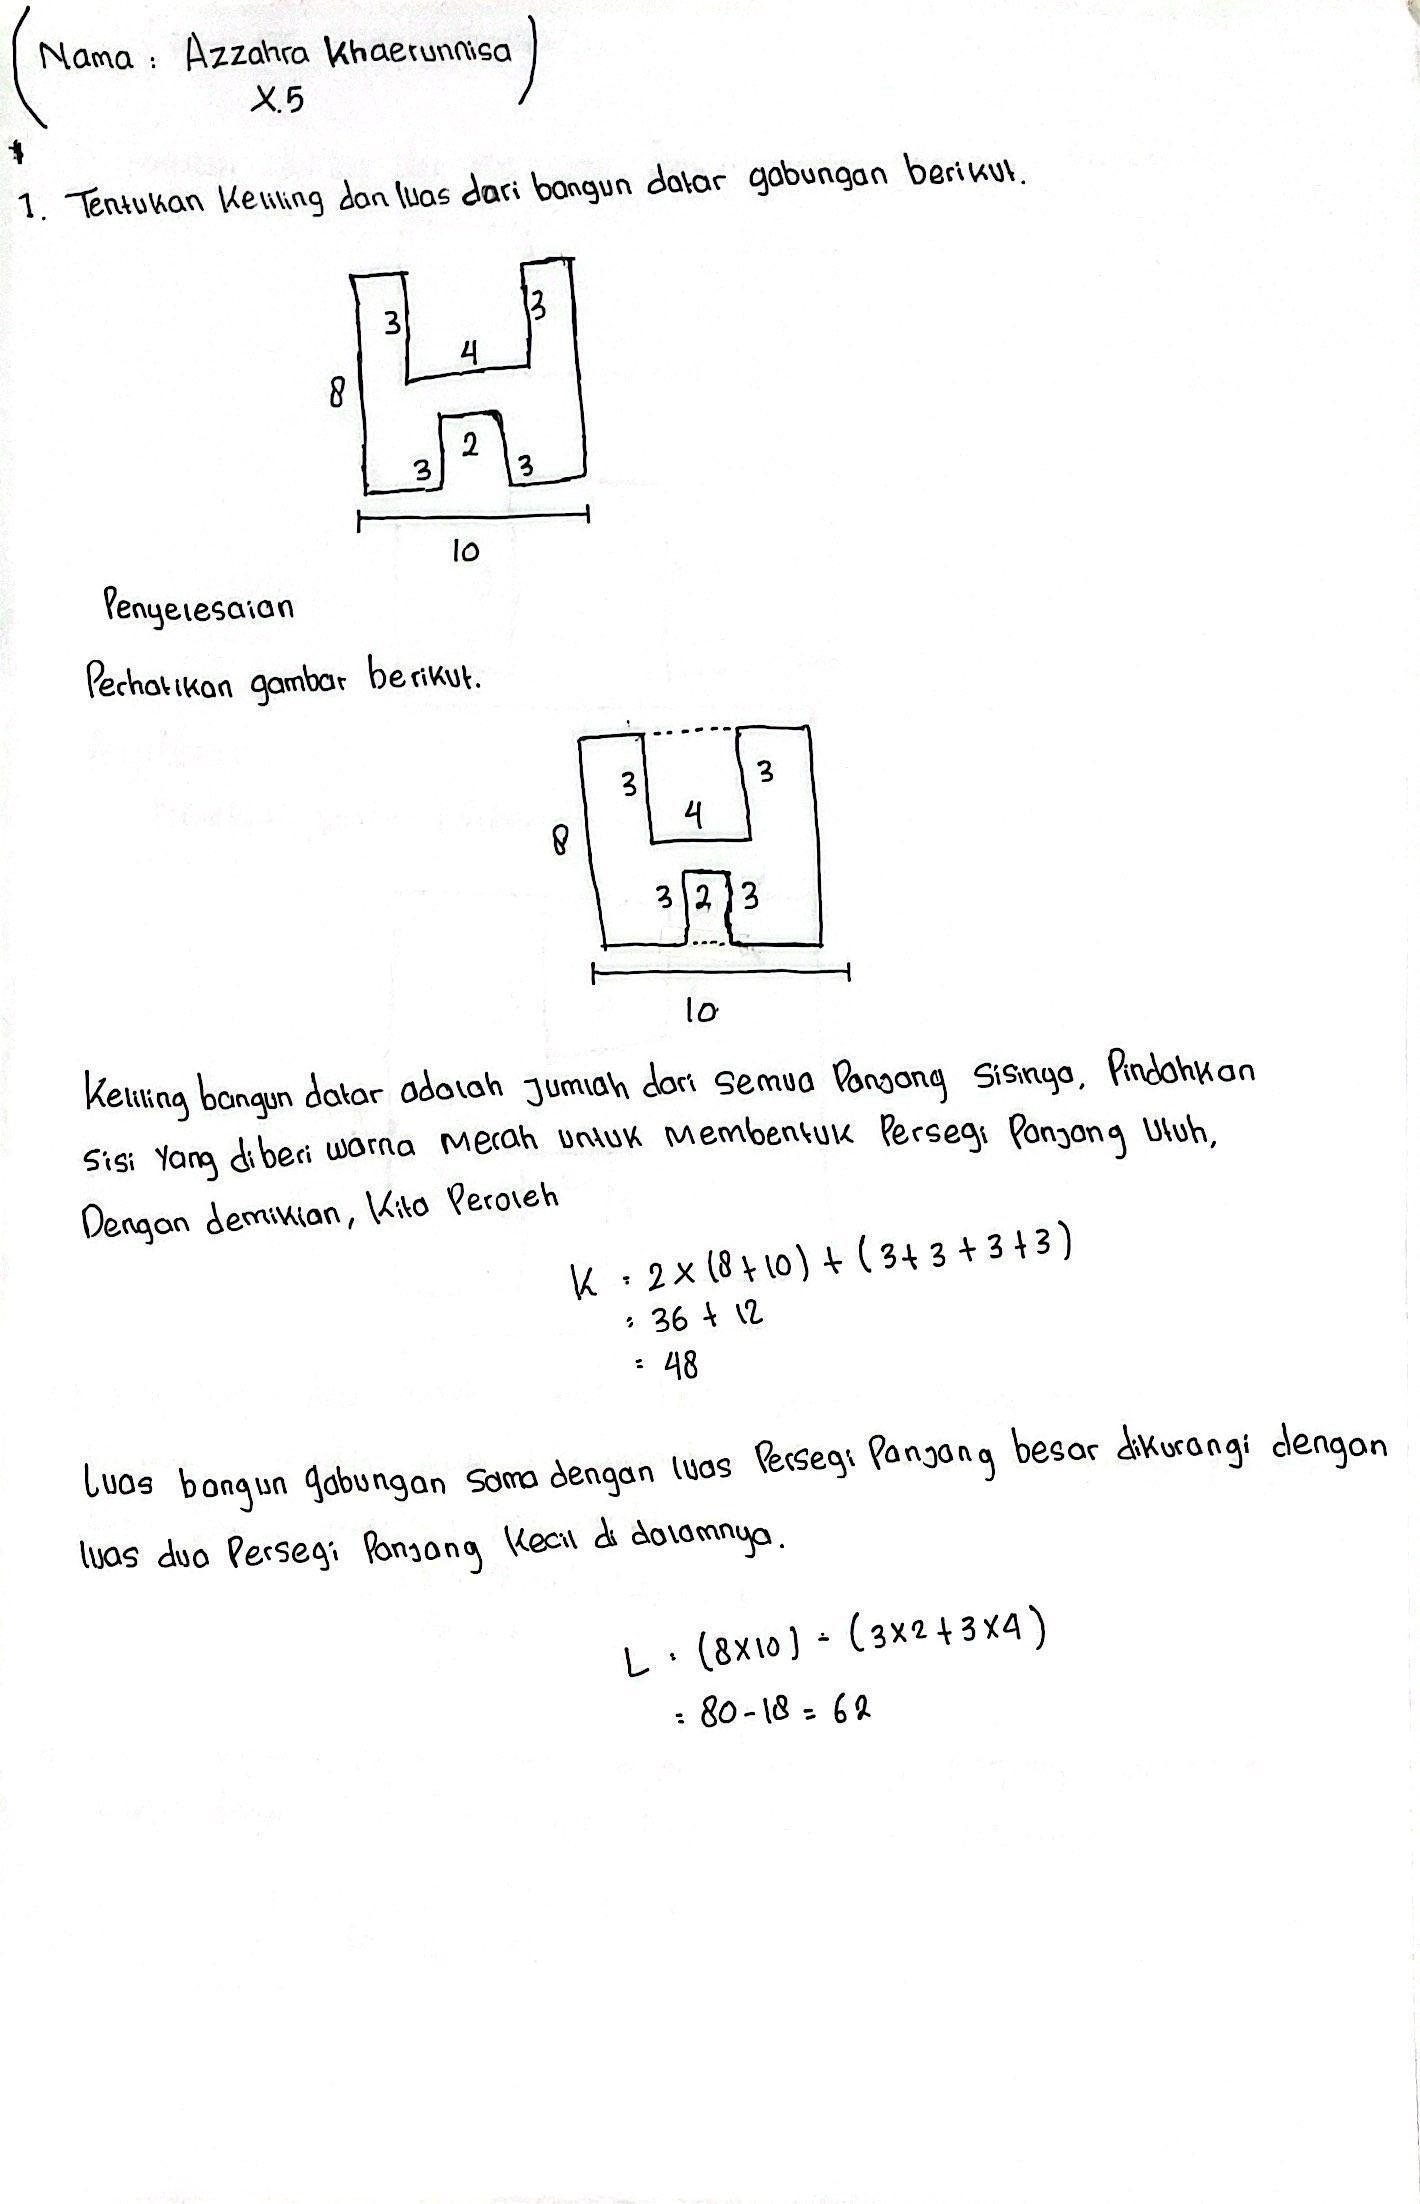 (Nama : Azzahra Khaerunnisa)
X.5
1. Tentukan Keliling dan luas dari bangun datar gabungan berikut.
3
3
4
8
2
3
3
10
Penyelesaian
Perhatikan gambar berikut.
3
3
4
8
3 2 3
10
Keliling bangun datar adalah Jumlah dari Semua Panjang Sisinya, Pindahkan
Sisi Yang diberi warna Merah untuk Membentuk Persegi Panjang Utuh,
Dengan demikian, Kita Peroleh
K = 2 x (8 + 10) + (3 + 3 + 3 + 3)
= 36 + 12
= 48
Luas bangun gabungan Sama dengan luas Persegi Panjang besar dikurangi dengan
luas dua Persegi Panjang Kecil di dalamnya.
L = (8x10) - (3x2 + 3x4)
= 80 - 18 = 62